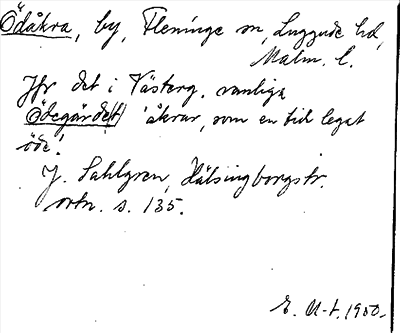 Ödåkra, by, Fleninge sn, Luggude hd,
Malm. l.
Jfr det i Västerg. vanliga
Ödegärdet 'åkrar, som en tid legat
öde'.
J. Sahlgren, Hälsingborgstr.
ortn. s. 135.
1950.